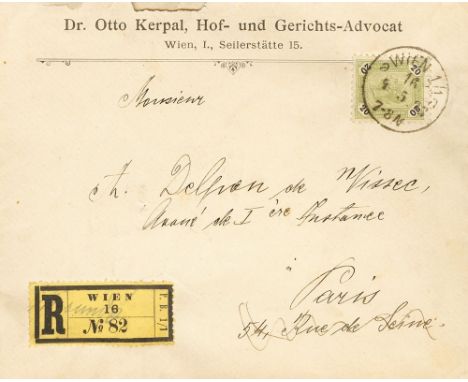 Dr. Otto Kerpal, Hof- und Gerichts-Advocat
Wien, I., Seilerstätte 15.
20 20
20 20
WIEN 1/1
14
5
7-8N
Monsieur
Ch. Delpon de Vissec,
Avoué de Ière Instance
Paris
54, Rue de Seine.
R
WIEN
16
No 82